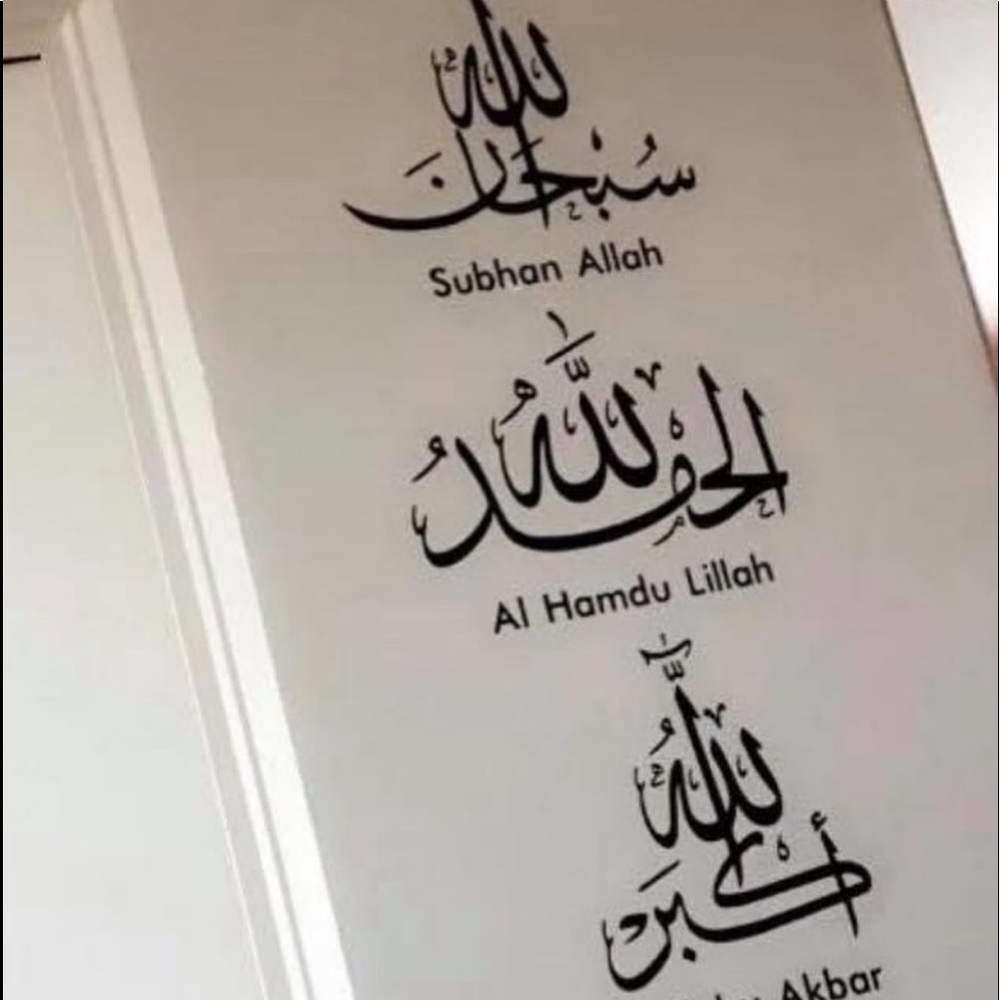 سُبْحَانَ اللّٰه
Subhan Allah
الْحَمْدُ لِلّٰهِ
Al Hamdu Lillah
اللّٰهُ أَكْبَر
Akbar